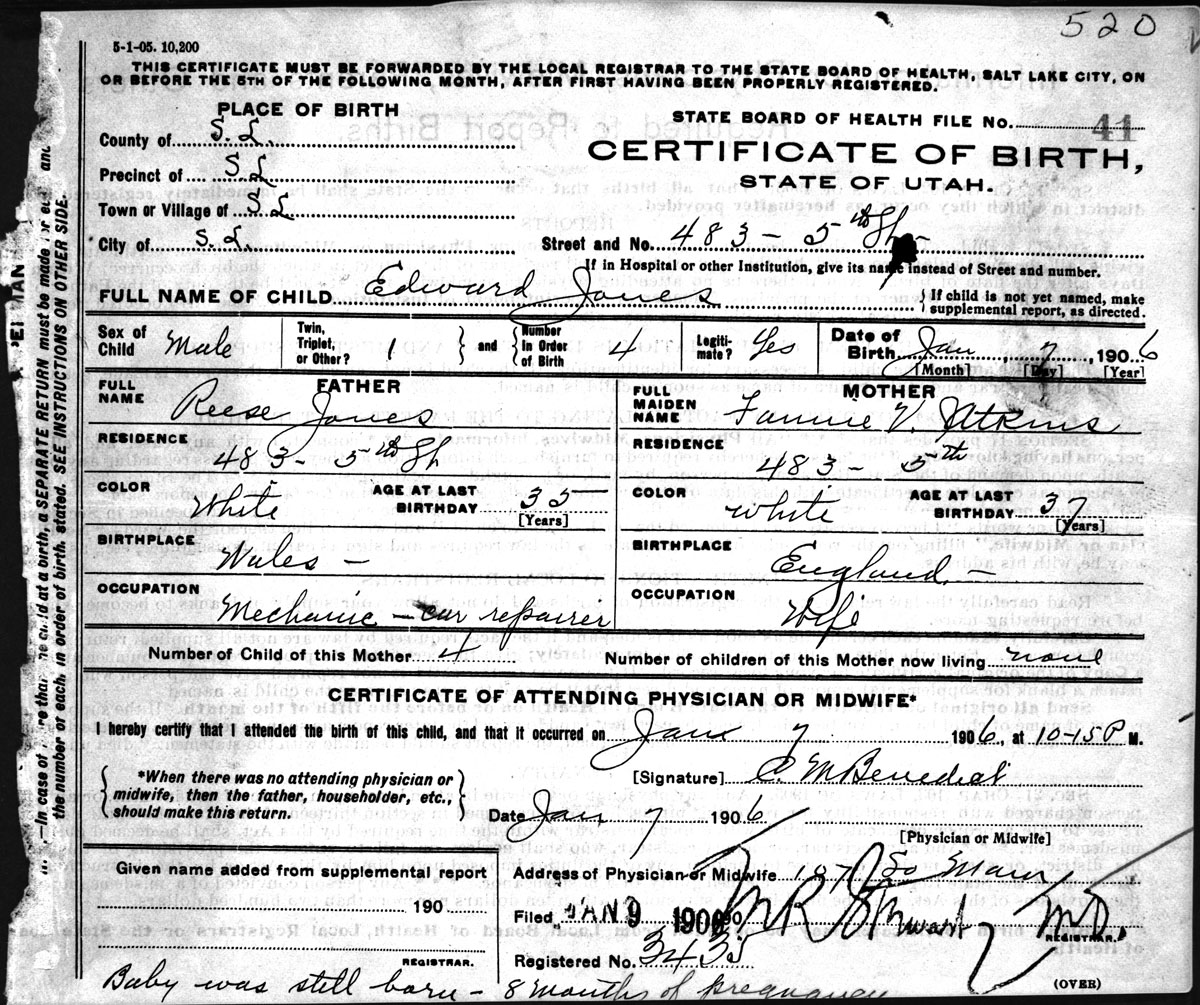 520
5-1-05. 10,200
THIS CERTIFICATE MUST BE FORWARDED BY THE LOCAL REGISTRAR TO THE STATE BOARD OF HEALTH, SALT LAKE CITY, ON
OR BEFORE THE 5TH OF THE FOLLOWING MONTH, AFTER FIRST HAVING BEEN PROPERLY REGISTERED.
PLACE OF BIRTH
STATE BOARD OF HEALTH FILE NO. 41
County of S. L.
CERTIFICATE OF BIRTH,
Precinct of S L
STATE OF UTAH.
Town or Village of S L
City of S. L. Street and No. 483 - 5th
If in Hospital or other Institution, give its name instead of Street and number.
FULL NAME OF CHILD Edward Jones { If child is not yet named, make
supplemental report, as directed.
Sex of Child Male Twin, Triplet, or Other? 1 } and { Number in Order of Birth 4 Legiti-mate? Yes Date of Birth Jan 7 1906
[Month] [Day] [Year]
FATHER
FULL NAME Reese Jones
RESIDENCE
483 - 5th
COLOR White AGE AT LAST BIRTHDAY 35
[Years]
BIRTHPLACE
Wales -
OCCUPATION
Mechanic - car repairer
MOTHER
FULL MAIDEN NAME Fannie V. Atkins
RESIDENCE
483 - 5th
COLOR White AGE AT LAST BIRTHDAY 37
[Years]
BIRTHPLACE
England -
OCCUPATION
Wife
Number of Child of this Mother 4 Number of children of this Mother now living none
CERTIFICATE OF ATTENDING PHYSICIAN OR MIDWIFE*
I hereby certify that I attended the birth of this child, and that it occurred on Jan 7 1906, at 10-15 P M.
{ *When there was no attending physician or
midwife, then the father, householder, etc.,
should make this return. }
[Signature] M Benedict
Date Jan 7 1906
[Physician or Midwife]
Given name added from supplemental report
190
REGISTRAR.
Address of Physician or Midwife So Main
Filed JAN 9 1906 190 Stewart M.D.
REGISTRAR.
Registered No. 3435
Baby was still born - 8 months of pregnancy
(OVER)
In case of more than one child at a birth, a SEPARATE RETURN must be made for each and
the number of each, in order of birth, stated. SEE INSTRUCTIONS ON OTHER SIDE.